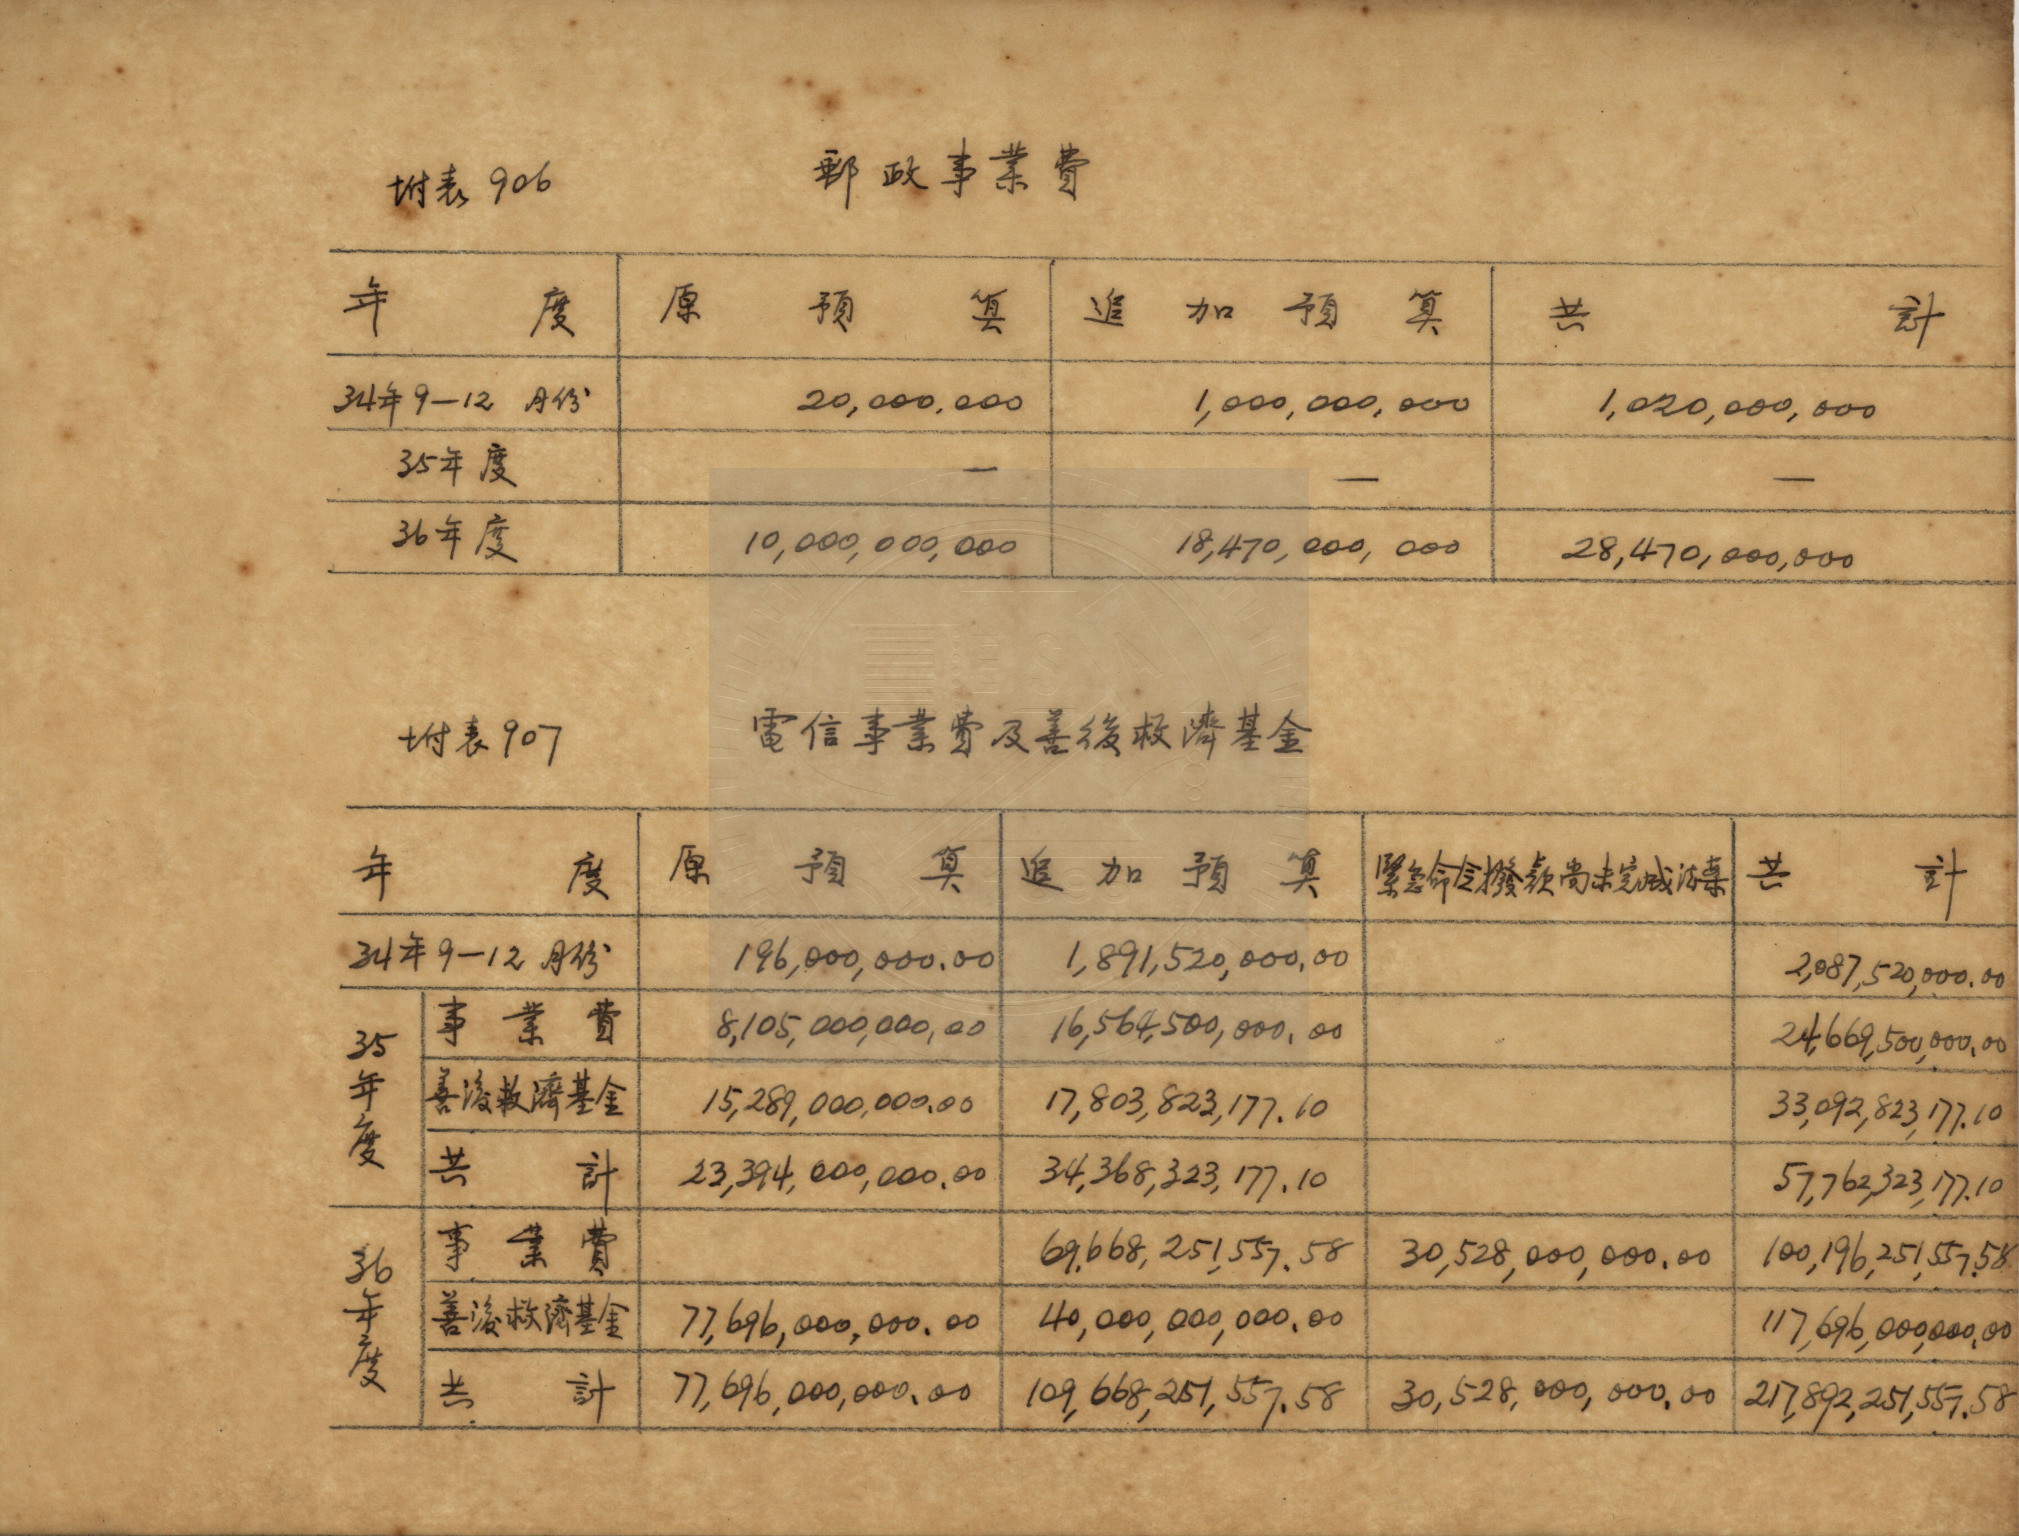 附表906 郵政事業費
年度 原預算 追加預算 共計
34年9—12月份 20,000,000 1,000,000,000 1,020,000,000
35年度 — — —
36年度 10,000,000,000 18,470,000,000 28,470,000,000
附表907 電信事業費及善後救濟基金
年度 原預算 追加預算 緊急命令撥款尚未完成法案 共計
34年9—12月份 196,000,000.00 1,891,520,000.00 2,087,520,000.00
35年度 事業費 8,105,000,000.00 16,564,500,000.00 24,669,500,000.00
善後救濟基金 15,289,000,000.00 17,803,823,177.10 33,092,823,177.10
共計 23,394,000,000.00 34,368,323,177.10 57,762,323,177.10
36年度 事業費 69,668,251,557.58 30,528,000,000.00 100,196,251,557.58
善後救濟基金 77,696,000,000.00 40,000,000,000.00 117,696,000,000.00
共計 77,696,000,000.00 109,668,251,557.58 30,528,000,000.00 217,892,251,557.58